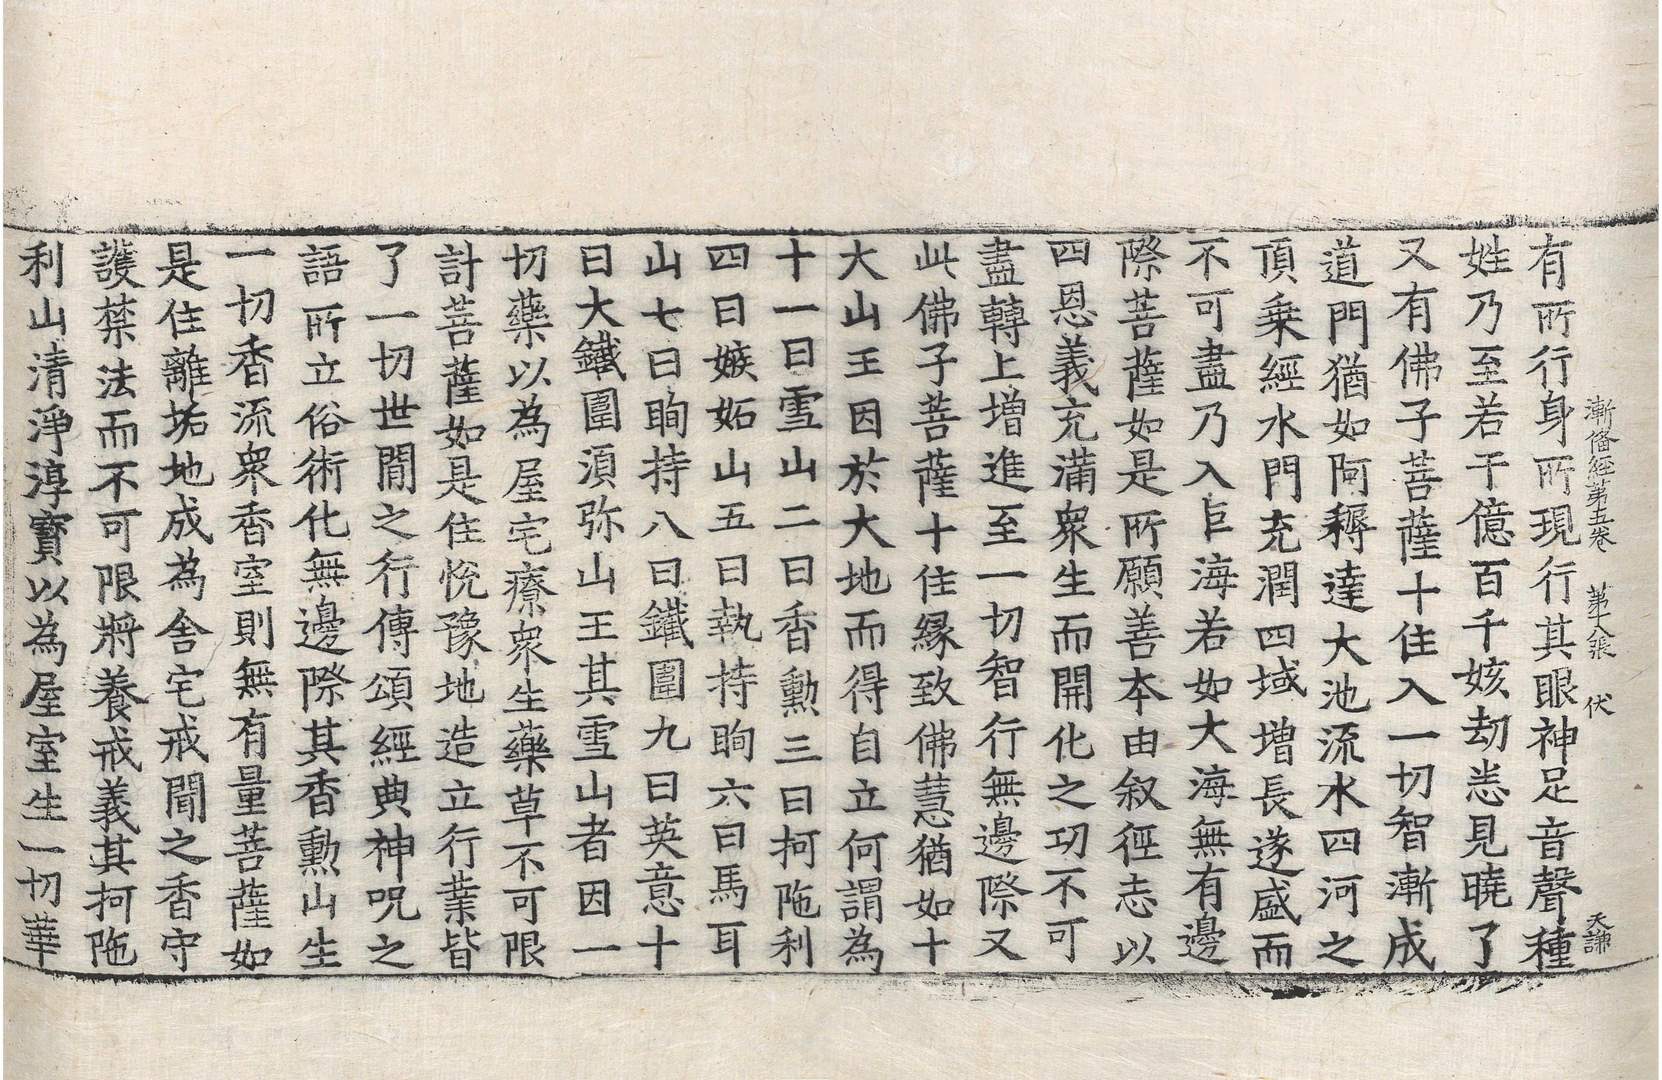 漸備經第五卷　第十八張　伏　天謙
有所行身所現行其眼神足音聲種
姓乃至若干億百千姟劫恙見曉了
又有佛子菩薩十住入一切智漸成
道門猶如阿耨達大池流水四河之
頂乗經水門充潤四域增長遂盛而
不可盡乃入巨海若如大海無有邊
際菩薩如是所願善本由叙徑志以
四恩義充滿衆生而開化之功不可
盡轉上增進至一切智行無邊際又
此佛子菩薩十住縁致佛慧猶如十
大山王因於大地而得自立何謂為
十一曰雪山二曰香勳三曰柯陁利
四曰嫉妬山五曰執持眴六曰馬耳
山七曰眴持八曰鐵圍九曰英意十
曰大鐵圍須弥山王其雪山者因一
切藥以為屋宅療衆生藥草不可限
計菩薩如是住悅豫地造立行業皆
了一切世閒之行傳頌經典神呪之
語所立俗術化無邊際其香勳山生
一切香流衆香室則無有量菩薩如
是住離垢地成為舍宅戒聞之香守
護禁法而不可限將養戒義其柯陁
利山清淨淳寳以為屋室生一切華